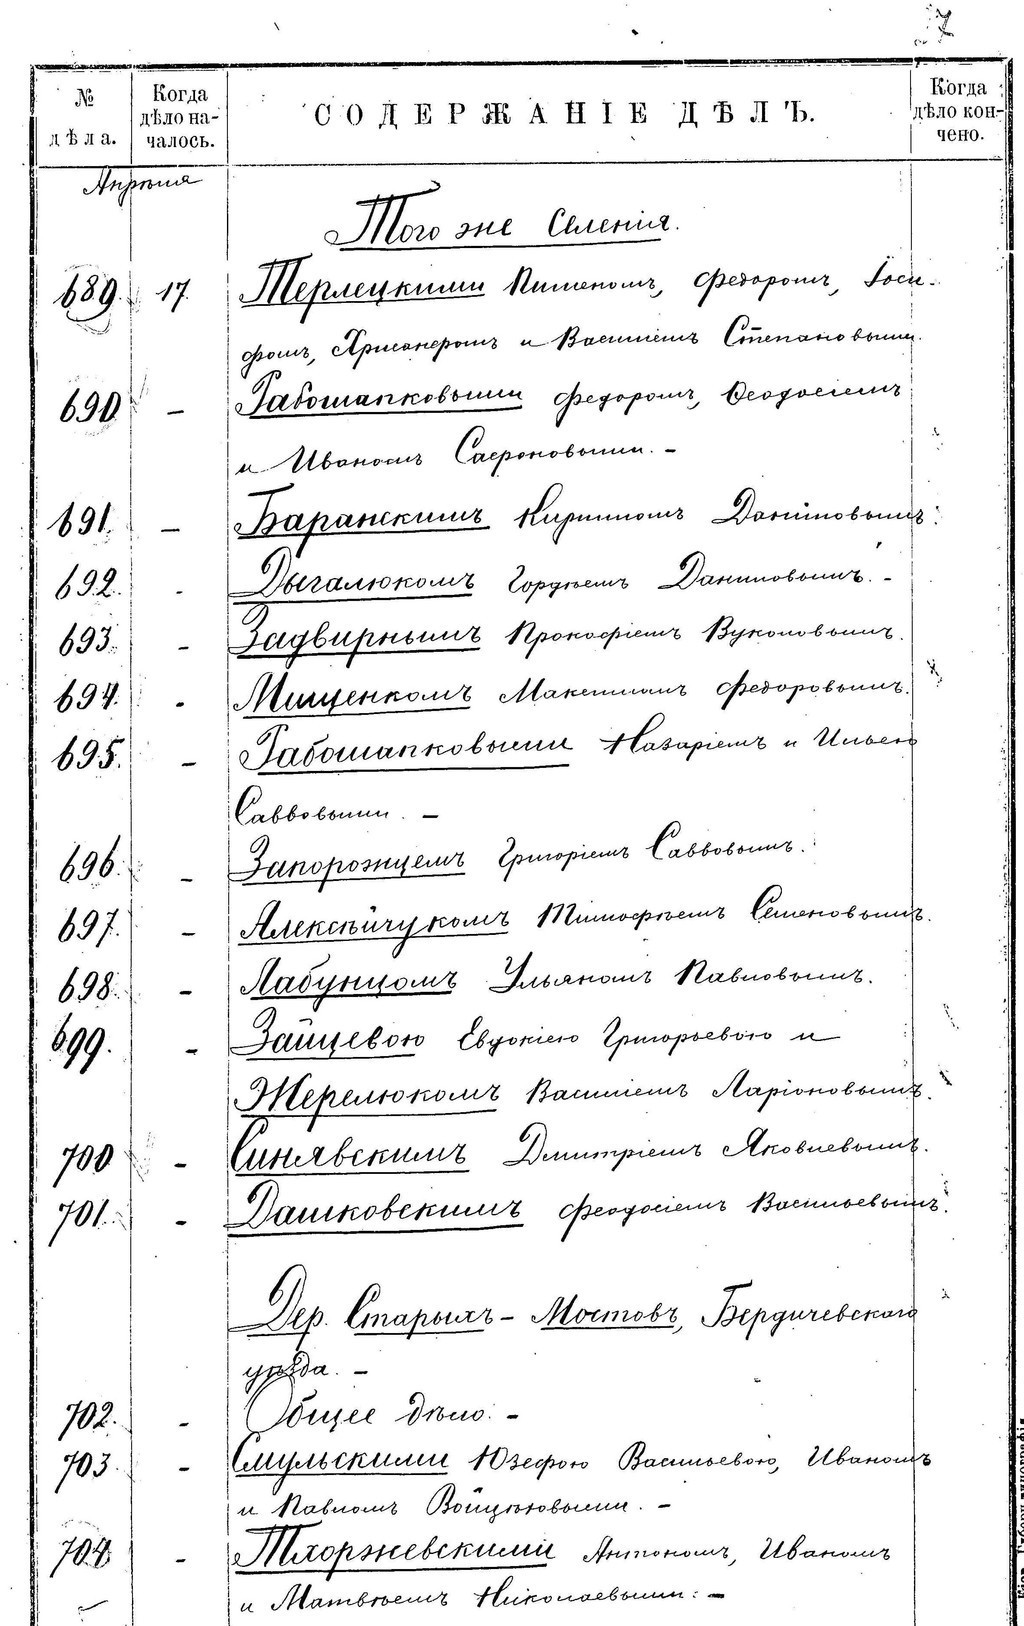 7
№ дѣла.
Когда дѣло на-чалось.
СОДЕРЖАНІЕ ДѢЛЪ.
Когда дѣло кон-чено.
Апрѣля
Того же селенія.
689. 17. Терлецкими Пименомъ, Федоромъ, Іоси-
фомъ, Хрисанфомъ и Василіемъ Степановыми.
690 – Рабошапковыми Федоромъ, Феодосіемъ
и Иваномъ Сафроновыми. –
691. – Баранскимъ Кирилломъ Даниловымъ.
692. - Дыгалюкомъ Гордѣемъ Даниловымъ. -
693. - Задвирнымъ Прокофіемъ Вуколовымъ.
694. - Мищенкомъ Максимомъ Федоровымъ.
695. - Рабошапковыми Назаріемъ и Ильею
Саввовыми. –
696. - Запорожцемъ Григоріемъ Саввовымъ.
697. - Алексѣйчукомъ Тимофѣемъ Семеновымъ.
698. - Лабунцомъ Ульяномъ Павловымъ.
699. - Зайцевою Евдокіею Григорьевою и
Жерелюкомъ Василіемъ Ларіоновымъ.
700 - Синявскимъ Дмитріемъ Яковлевымъ.
701. - Дашковскимъ Феодосіемъ Васильевымъ.
Дер. Старыхъ-Мостовъ, Бердичевскаго
уѣзда. –
702. - Общее дѣло. -
703. - Смульскими Юзефою Васильевою, Иваномъ
и Павломъ Войцѣховыми. -
704 - Тхоржевскими Антономъ, Иваномъ
и Матвѣемъ Николаевыми: –